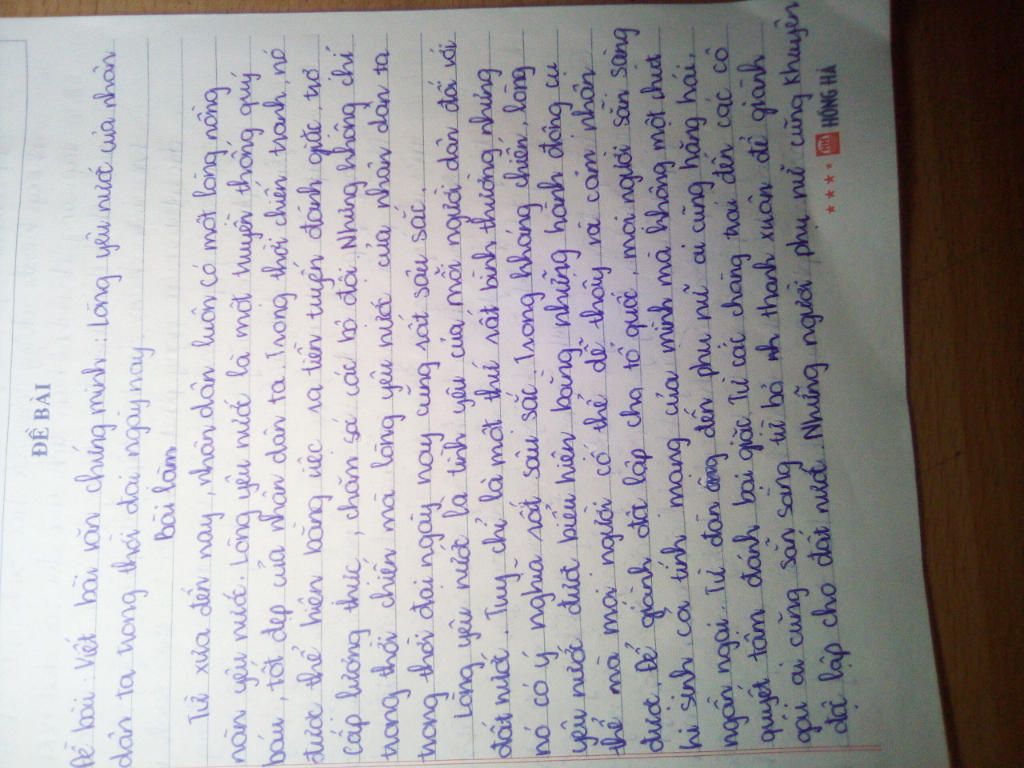 ĐỀ BÀI
Đề bài: Viết bài văn chứng minh: Lòng yêu nước của nhân
dân ta trong thời đại ngày nay.
Bài làm
Từ xưa đến nay, nhân dân luôn có một lòng nồng
nàn yêu nước. Lòng yêu nước là một truyền thống quý
báu, tốt đẹp của nhân dân ta. Trong thời chiến tranh, nó
được thể hiện bằng việc ra tiền tuyến đánh giặc, trợ
cấp lương thực, chăm sóc các bộ đội. Nhưng không chỉ
trong thời chiến mà lòng yêu nước của nhân dân ta
trong thời đại ngày nay cũng rất sâu sắc.
Lòng yêu nước là tình yêu của mỗi người dân đối với
đất nước. Tuy chỉ là một thứ rất bình thường nhưng
nó có ý nghĩa rất sâu sắc. Trong kháng chiến, lòng
yêu nước được biểu hiện bằng những hành động cụ
thể mà mọi người có thể dễ thấy và cảm nhận
được. Để giành độc lập cho tổ quốc, mọi người sẵn sàng
hi sinh cả tính mạng của mình mà không một chút
ngần ngại. Từ đàn ông đến phụ nữ ai cũng hăng hái,
quyết tâm đánh bại giặc. Từ các chàng trai đến các cô
gái ai cũng sẵn sàng từ bỏ thanh xuân để giành
độc lập cho đất nước. Những người phụ nữ cũng khuyên
HỒNG HÀ